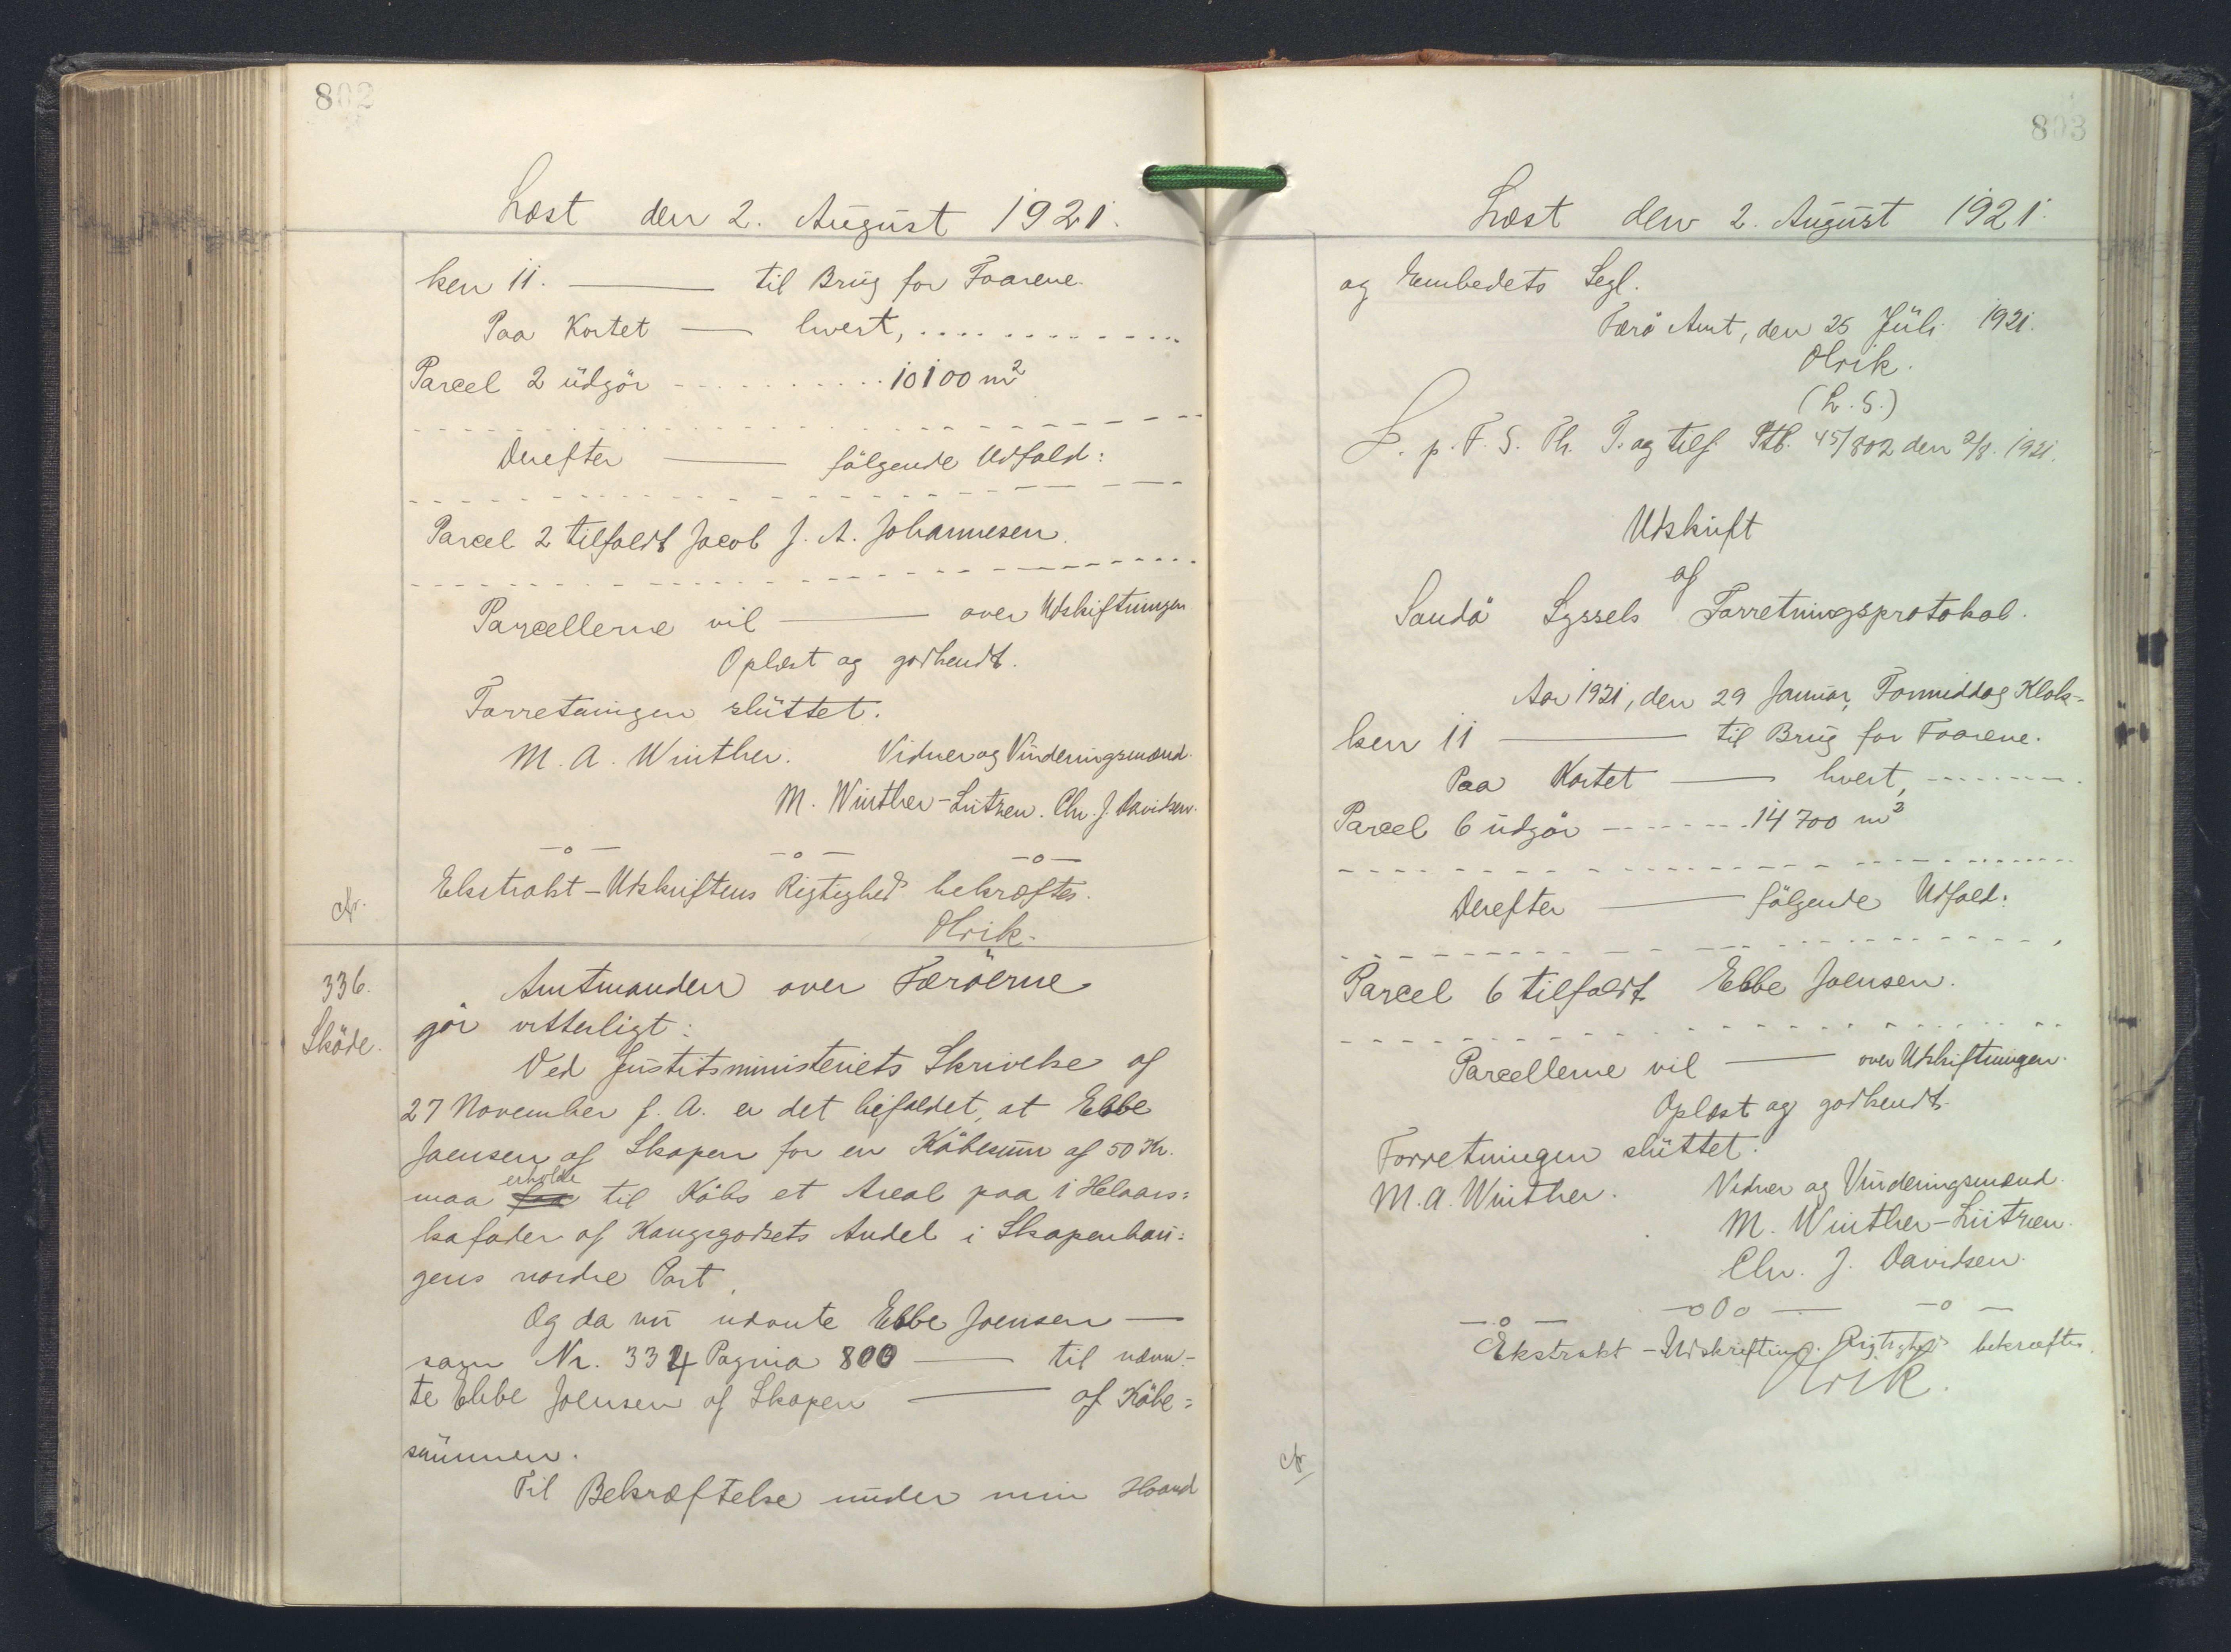 802
Læst den 2. August 1921.
ken 11. —— til Brug for Faarene.
Paa Kortet —— hvert, ............
Parcel 2 udgör ........... 10100 m2
Derefter —— fölgende Udfald:
Parcel 2 tilfaldt Jacob J. A. Johannesen.
Parcellerne vil —— over Udskiftningen
Oplæst og godkendt.
Forretningen sluttet.
M. A. Winther. Vidner og Vurderingsmænd.
M. Winther-Lützen. Chr. J. Davidsen.
—o— —o— —o—
Ekstrakt-Udskriftens Rigtighed bekræftes.
Olrik.
336.
Sköde.
Amtmanden over Færöerne
gör vitterligt:
Ved Justitsministeriets Skrivelse af
27 November f. A. er det bifaldet, at Ebbe
Joensen af Skopen for en Köbesum af 50 Kr.
erholde
maa faa til Köbs et Areal paa 1 Helaars=
kofoder af Kongsgodsets Andel i Skopenhau=
gens nordre Part.
Og da nu nævnte Ebbe Joensen —
som Nr. 334 Pagina 800 —— til nævn-
te Ebbe Joensen af Skopen —— af Köbe=
summen.
Til Bekræftelse under min Haand
803
Læst den 2. August 1921.
og Embedets Segl.
Færö Amt, den 25 Juli 1921.
Olrik.
(L. S.)
L. p. F. S. Th. T. og tilf Ptb. 45/802 den 2/8. 1921.
Udskrift
af
Sandö Syssels Forretningsprotokol.
Aar 1921, den 29 Januar, Formiddag Klok-
ken 11 —— til Brug for Faarene.
Paa Kortet —— hvert, ........
Parcel 6 udgör ........ 14700 m2
Derefter —— fölgende Udfald:
Parcel 6 tilfaldt Ebbe Joensen.
Parcellerne vil —— over Udskiftningen.
Oplæst og godkendt.
Forretningen sluttet.
M. A. Winther. Vidner og Vurderingsmænd.
M. Winther-Lützen.
Chr. J. Davidsen.
—o— —oOo— —o—
Ekstrakt-Udskriftens Rigtighed bekræftes.
Olrik.